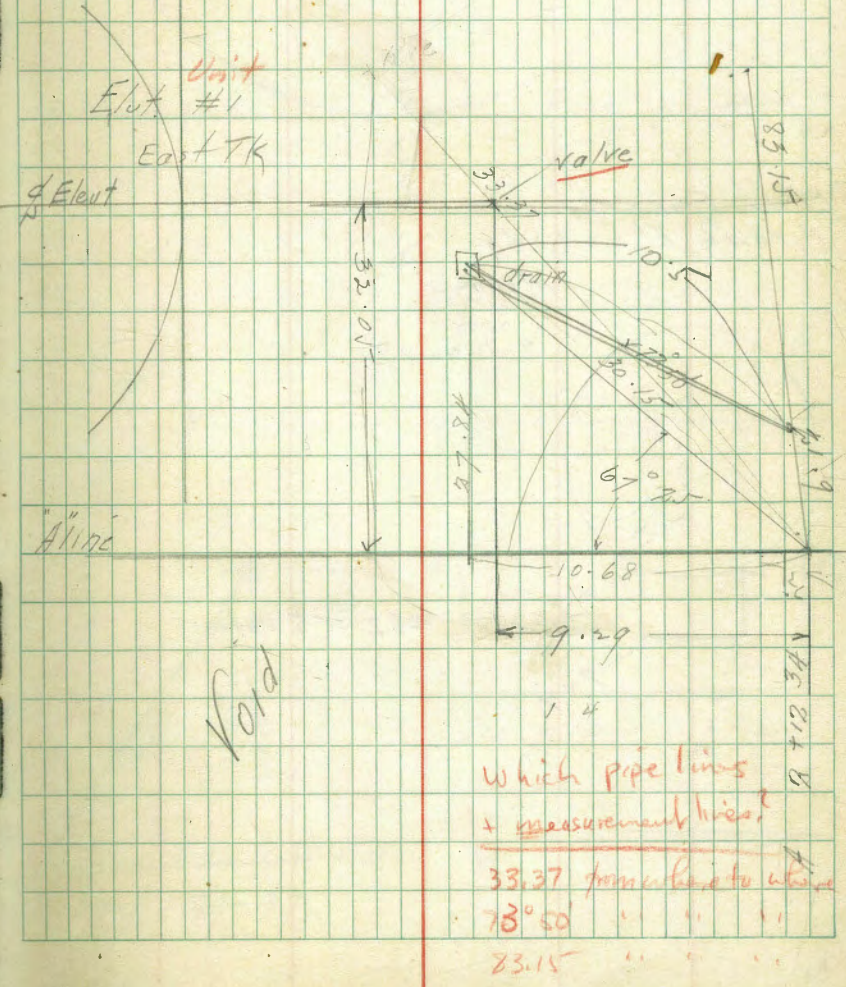 Unit
Elut. #1
East TK
℄ Eleut
valve
33.37
83.15
10.5
drain
73°50
30.15
32.05
27.84
67°25
1.9
"A" line
10.68
9.29
Void
1 4
A B +12.34
Which pipe lines
+ measurement lines?
33.37 from where to where
73°50' " " "
83.15 " " "